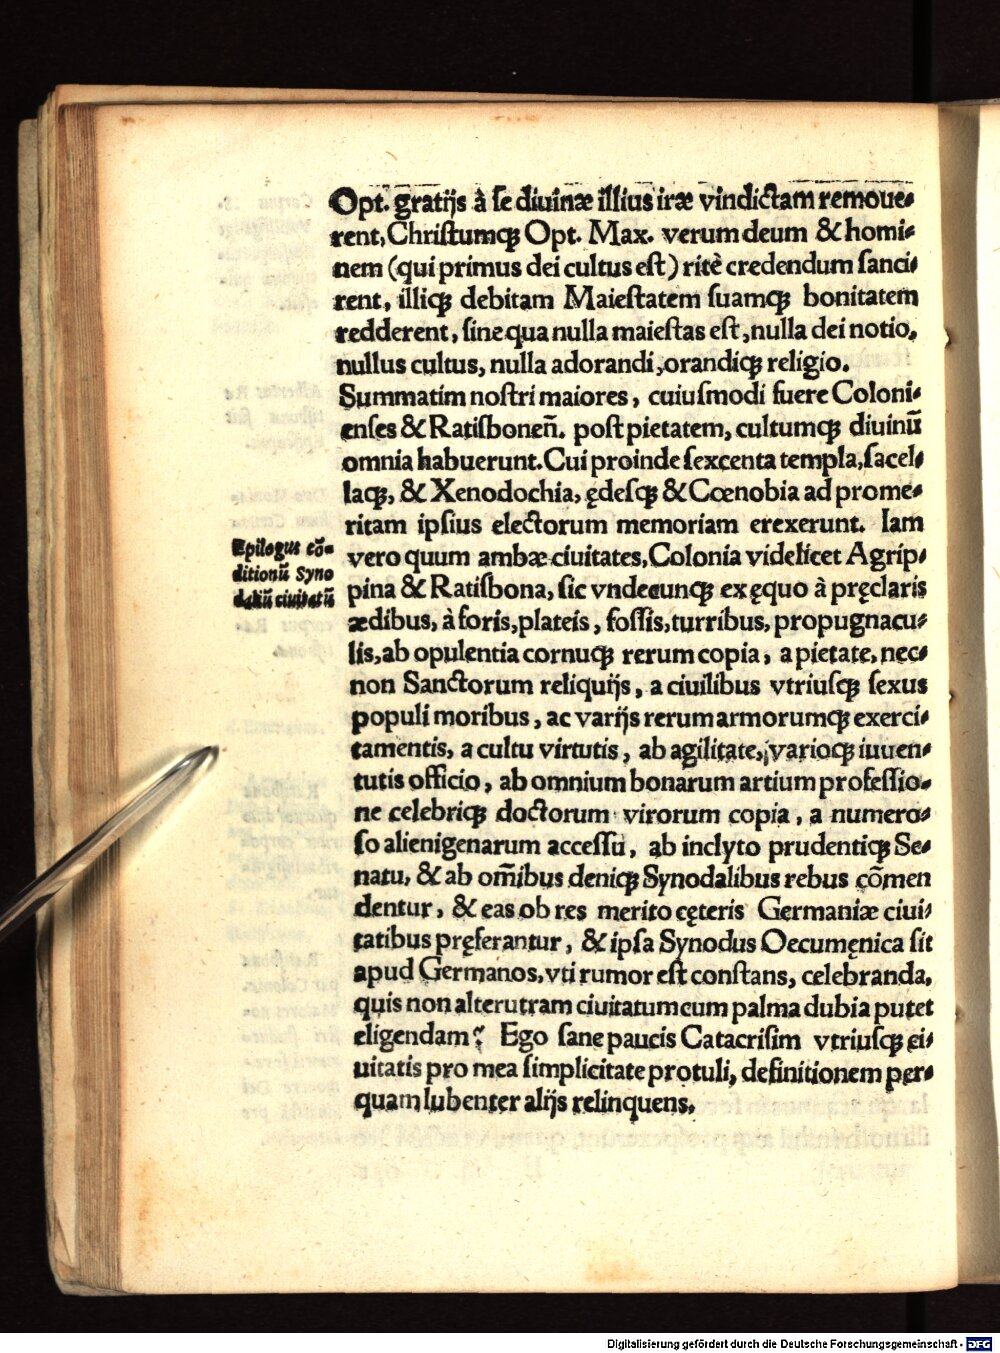 Opt. gratijs à se diuinæ illius iræ vindictam remoue⸗
rent, Christumq̃ Opt. Max. verum deum & homi⸗
nem (qui primus dei cultus est) ritè credendum sanci⸗
rent, illiq̃ debitam Maiestatem suamq̃ bonitatem
redderent, sine qua nulla maiestas est, nulla dei notio,
nullus cultus, nulla adorandi, orandiq̃ religio.
Summatim nostri maiores, cuiusmodi fuere Coloni⸗
enses & Ratisbonen̄. post pietatem, cultumq̃ diuinū
omnia habuerunt. Cui proinde sexcenta templa, sacel⸗
laq̃, & Xenodochia, ędesq̃ & Cœnobia ad prome⸗
ritam ipsius electorum memoriam erexerunt. Iam
vero quum ambæ ciuitates, Colonia videlicet Agrip⸗
pina & Ratisbona, sic vndecunq̃ ex ęquo à pręclaris
ædibus, à foris, plateis, fossis, turribus, propugnacu⸗
lis, ab opulentia cornuq̃ rerum copia, a pietate, nec⸗
non Sanctorum reliquijs, a ciuilibus vtriusq̃ sexus
populi moribus, ac varijs rerum armorumq̃ exerci⸗
tamentis, a cultu virtutis, ab agilitate, varioq̃ iuuen⸗
tutis officio, ab omnium bonarum artium professio⸗
ne celebriq̃ doctorum virorum copia, a numero⸗
so alienigenarum accessu, ab inclyto prudentiq̃ Se⸗
natu, & ab om̄ibus deniq̃ Synodalibus rebus cōmen
dentur, & eas ob res merito cęteris Germaniæ ciui⸗
tatibus pręferantur, & ipsa Synodus Oecumęnica sit
apud Germanos, vti rumor est constans, celebranda,
quis non alterutram ciuitatum cum palma dubia putet
eligendam? Ego sane paucis Catacrisim vtriusq̃ ci⸗
uitatis pro mea simplicitate protuli, definitionem per⸗
quam lubenter alijs relinquens.
Epilogus cō⸗
ditionū Syno
daliū ciuitatū
Digitalisierung gefördert durch die Deutsche Forschungsgemeinschaft - DFG